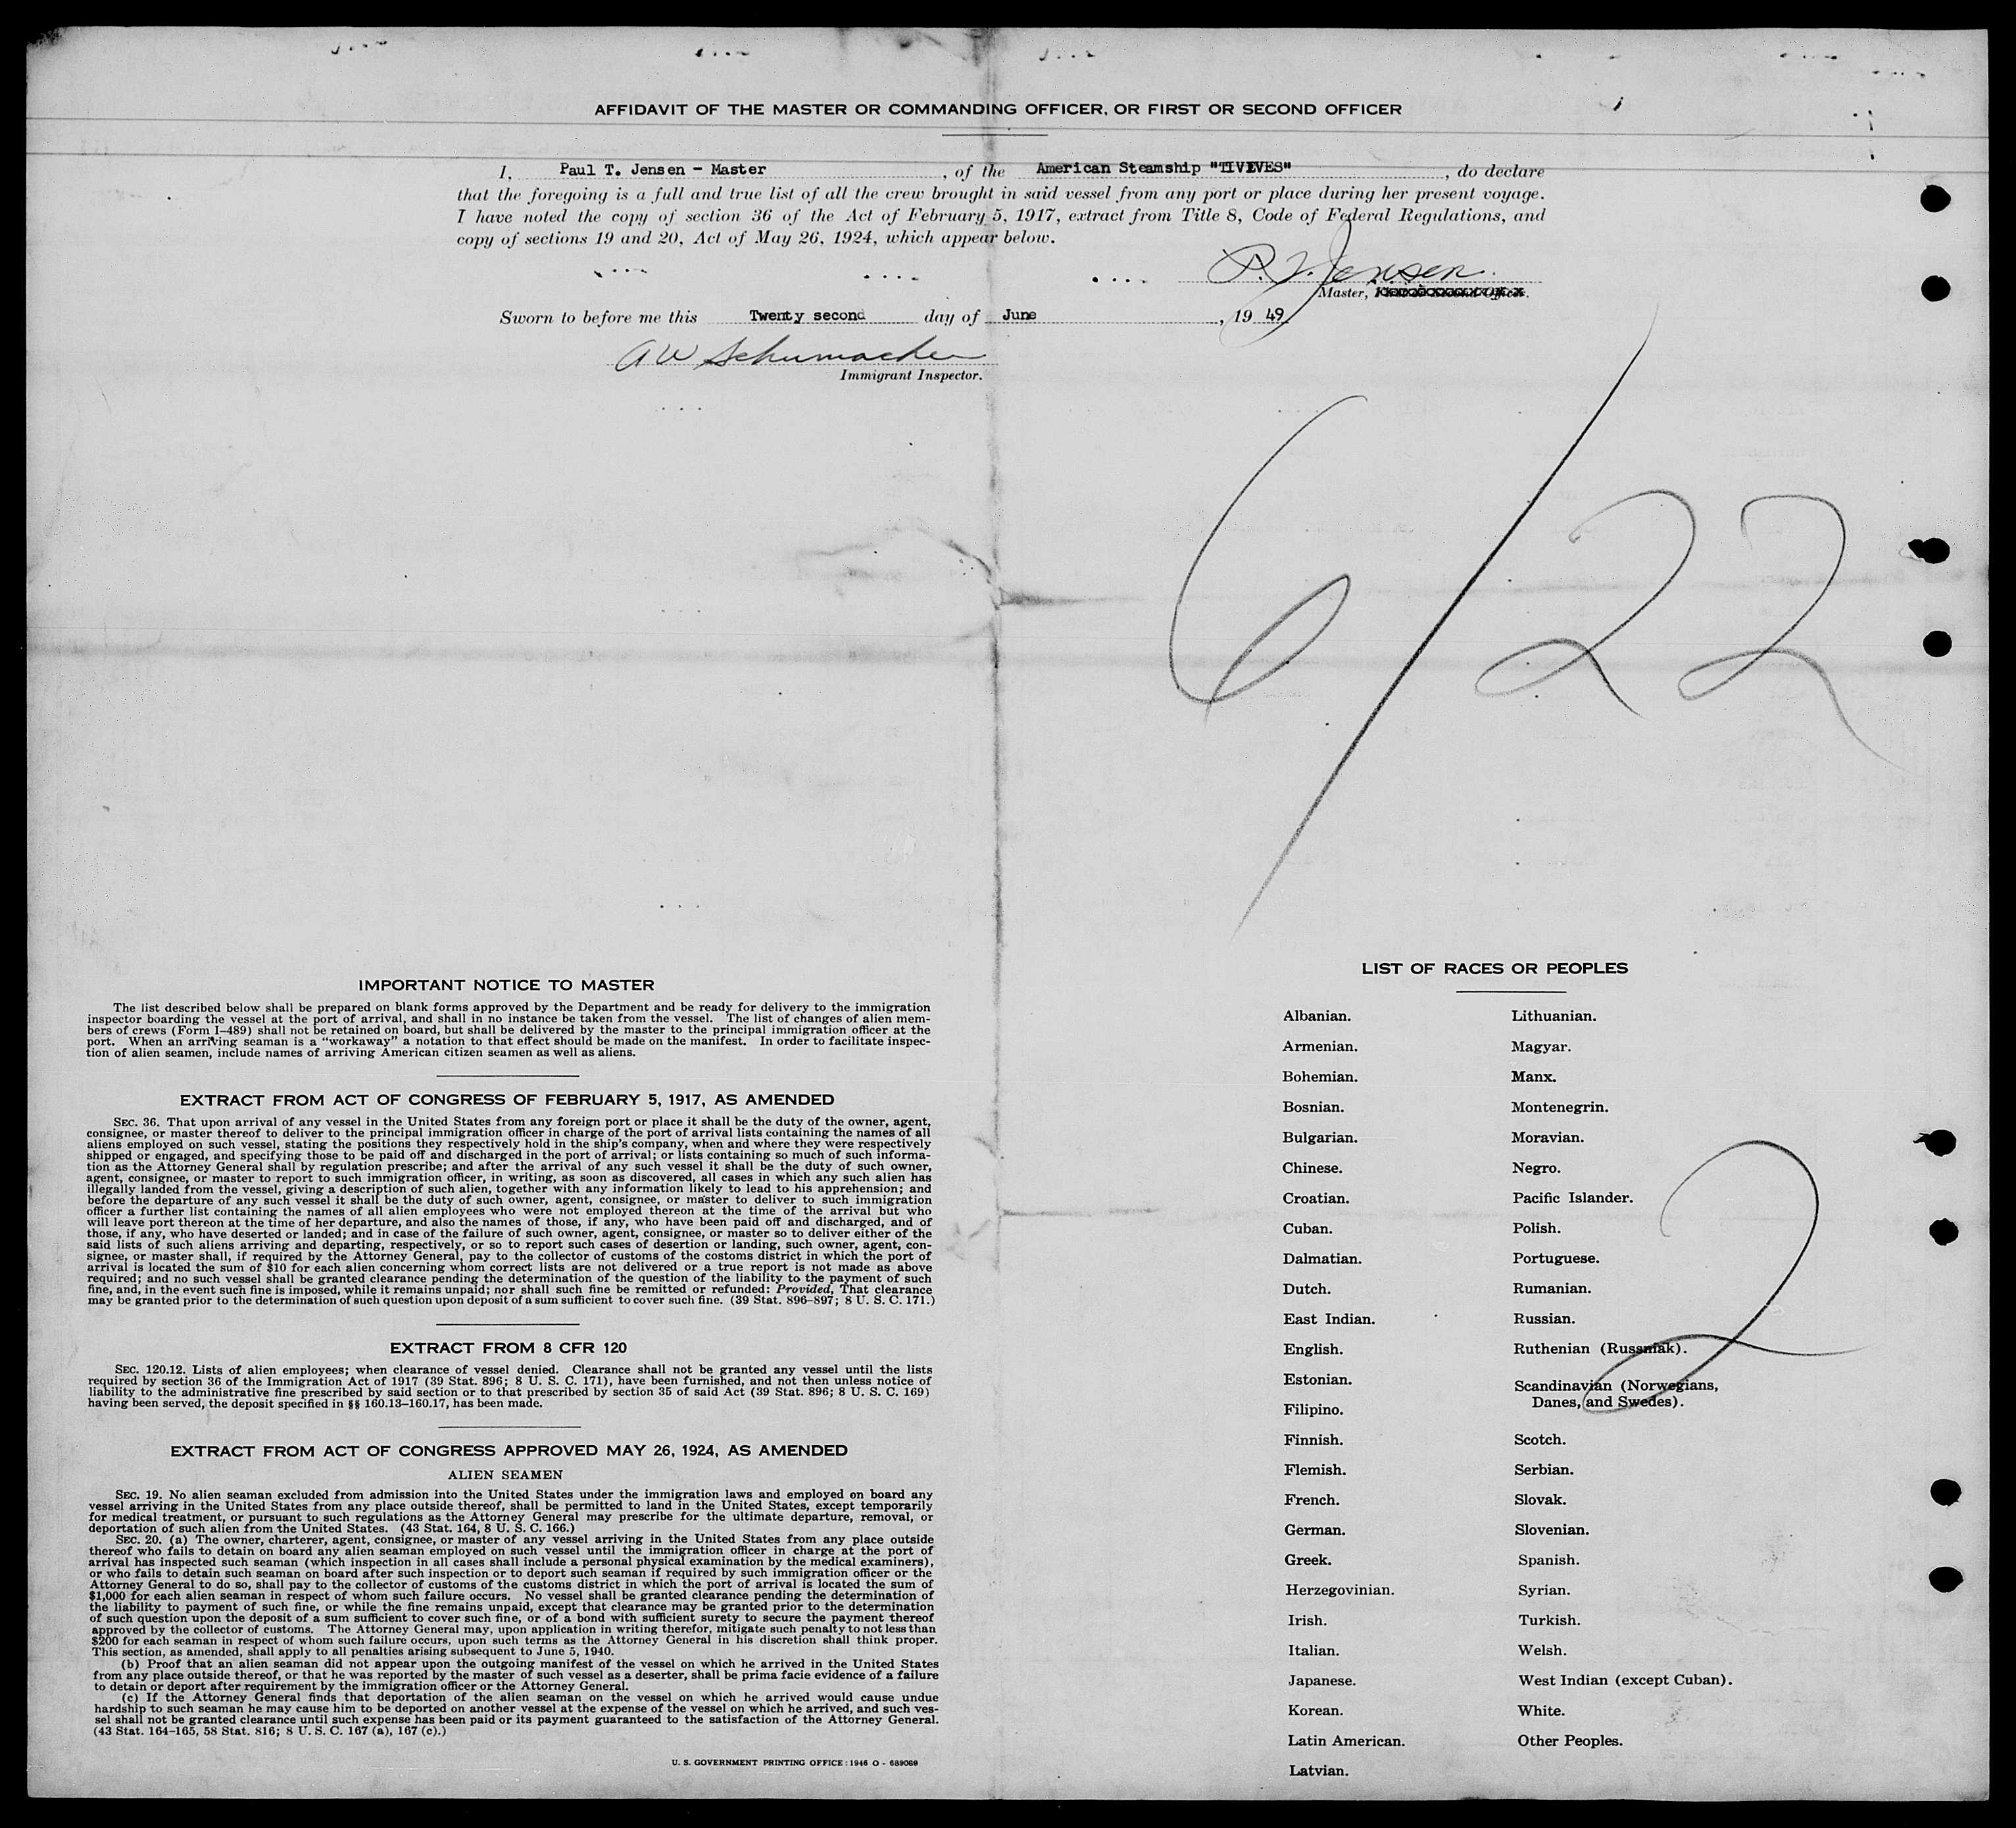 AFFIDAVIT OF THE MASTER OR COMMANDING OFFICER, OR FIRST OR SECOND OFFICER
I, Paul T. Jensen - Master, of the American Steamship "TIVIVES", do declare
that the foregoing is a full and true list of all the crew brought in said vessel from any port or place during her present voyage.
I have noted the copy of section 36 of the Act of February 5, 1917, extract from Title 8, Code of Federal Regulations, and
copy of sections 19 and 20, Act of May 26, 1924, which appear below.
P. T. Jensen
Master,
Sworn to before me this Twenty second day of June, 19 49
A W Schumacher
Immigrant Inspector.
6/22
IMPORTANT NOTICE TO MASTER
The list described below shall be prepared on blank forms approved by the Department and be ready for delivery to the immigration
inspector boarding the vessel at the port of arrival, and shall in no instance be taken from the vessel. The list of changes of alien mem-
bers of crews (Form I-489) shall not be retained on board, but shall be delivered by the master to the principal immigration officer at the
port. When an arriving seaman is a "workaway" a notation to that effect should be made on the manifest. In order to facilitate inspec-
tion of alien seamen, include names of arriving American citizen seamen as well as aliens.
EXTRACT FROM ACT OF CONGRESS OF FEBRUARY 5, 1917, AS AMENDED
SEC. 36. That upon arrival of any vessel in the United States from any foreign port or place it shall be the duty of the owner, agent,
consignee, or master thereof to deliver to the principal immigration officer in charge of the port of arrival lists containing the names of all
aliens employed on such vessel, stating the positions they respectively hold in the ship's company, when and where they were respectively
shipped or engaged, and specifying those to be paid off and discharged in the port of arrival; or lists containing so much of such informa-
tion as the Attorney General shall by regulation prescribe; and after the arrival of any such vessel it shall be the duty of such owner,
agent, consignee, or master to report to such immigration officer, in writing, as soon as discovered, all cases in which any such alien has
illegally landed from the vessel, giving a description of such alien, together with any information likely to lead to his apprehension; and
before the departure of any such vessel it shall be the duty of such owner, agent, consignee, or master to deliver to such immigration
officer a further list containing the names of all alien employees who were not employed thereon at the time of the arrival but who
will leave port thereon at the time of her departure, and also the names of those, if any, who have been paid off and discharged, and of
those, if any, who have deserted or landed; and in case of the failure of such owner, agent, consignee, or master so to deliver either of the
said lists of such aliens arriving and departing, respectively, or so to report such cases of desertion or landing, such owner, agent, con-
signee, or master, shall, if required by the Attorney General, pay to the collector of customs of the costoms district in which the port of
arrival is located the sum of $10 for each alien concerning whom correct lists are not delivered or a true report is not made as above
required; and no such vessel shall be granted clearance pending the determination of the question of the liability to the payment of such
fine, and, in the event such fine is imposed, while it remains unpaid; nor shall such fine be remitted or refunded: Provided, That clearance
may be granted prior to the determination of such question upon deposit of a sum sufficient to cover such fine. (39 Stat. 896-897; 8 U. S. C. 171.)
EXTRACT FROM 8 CFR 120
SEC. 120.12. Lists of alien employees; when clearance of vessel denied. Clearance shall not be granted any vessel until the lists
required by section 36 of the Immigration Act of 1917 (39 Stat. 896; 8 U. S. C. 171), have been furnished, and not then unless notice of
liability to the administrative fine prescribed by said section or to that prescribed by section 35 of said Act (39 Stat. 896; 8 U. S. C. 169)
having been served, the deposit specified in §§ 160.13-160.17, has been made.
EXTRACT FROM ACT OF CONGRESS APPROVED MAY 26, 1924, AS AMENDED
ALIEN SEAMEN
SEC. 19. No alien seaman excluded from admission into the United States under the immigration laws and employed on board any
vessel arriving in the United States from any place outside thereof, shall be permitted to land in the United States, except temporarily
for medical treatment, or pursuant to such regulations as the Attorney General may prescribe for the ultimate departure, removal, or
deportation of such alien from the United States. (43 Stat. 164, 8 U. S. C. 166.)
SEC. 20. (a) The owner, charterer, agent, consignee, or master of any vessel arriving in the United States from any place outside
thereof who fails to detain on board any alien seaman employed on such vessel until the immigration officer in charge at the port of
arrival has inspected such seaman (which inspection in all cases shall include a personal physical examination by the medical examiners),
or who fails to detain such seaman on board after such inspection or to deport such seaman if required by such immigration officer or the
Attorney General to do so, shall pay to the collector of customs of the customs district in which the port of arrival is located the sum of
$1,000 for each alien seaman in respect of whom such failure occurs. No vessel shall be granted clearance pending the determination of
the liability to payment of such fine, or while the fine remains unpaid, except that clearance may be granted prior to the determination
of such question upon the deposit of a sum sufficient to cover such fine, or of a bond with sufficient surety to secure the payment thereof
approved by the collector of customs. The Attorney General may, upon application in writing therefor, mitigate such penalty to not less than
$200 for each seaman in respect of whom such failure occurs, upon such terms as the Attorney General in his discretion shall think proper.
This section, as amended, shall apply to all penalties arising subsequent to June 5, 1940.
(b) Proof that an alien seaman did not appear upon the outgoing manifest of the vessel on which he arrived in the United States
from any place outside thereof, or that he was reported by the master of such vessel as a deserter, shall be prima facie evidence of a failure
to detain or deport after requirement by the immigration officer or the Attorney General.
(c) If the Attorney General finds that deportation of the alien seaman on the vessel on which he arrived would cause undue
hardship to such seaman he may cause him to be deported on another vessel at the expense of the vessel on which he arrived, and such ves-
sel shall not be granted clearance until such expense has been paid or its payment guaranteed to the satisfaction of the Attorney General.
(43 Stat. 164-165, 58 Stat. 816; 8 U. S. C. 167 (a), 167 (c).)
U. S. GOVERNMENT PRINTING OFFICE : 1946 O - 689069
LIST OF RACES OR PEOPLES
Albanian.
Armenian.
Bohemian.
Bosnian.
Bulgarian.
Chinese.
Croatian.
Cuban.
Dalmatian.
Dutch.
East Indian.
English.
Estonian.
Filipino.
Finnish.
Flemish.
French.
German.
Greek.
Herzegovinian.
Irish.
Italian.
Japanese.
Korean.
Latin American.
Latvian.
Lithuanian.
Magyar.
Manx.
Montenegrin.
Moravian.
Negro.
Pacific Islander.
Polish.
Portuguese.
Rumanian.
Russian.
Ruthenian (Russniak).
Scandinavian (Norwegians,
Danes, and Swedes).
Scotch.
Serbian.
Slovak.
Slovenian.
Spanish.
Syrian.
Turkish.
Welsh.
West Indian (except Cuban).
White.
Other Peoples.
2